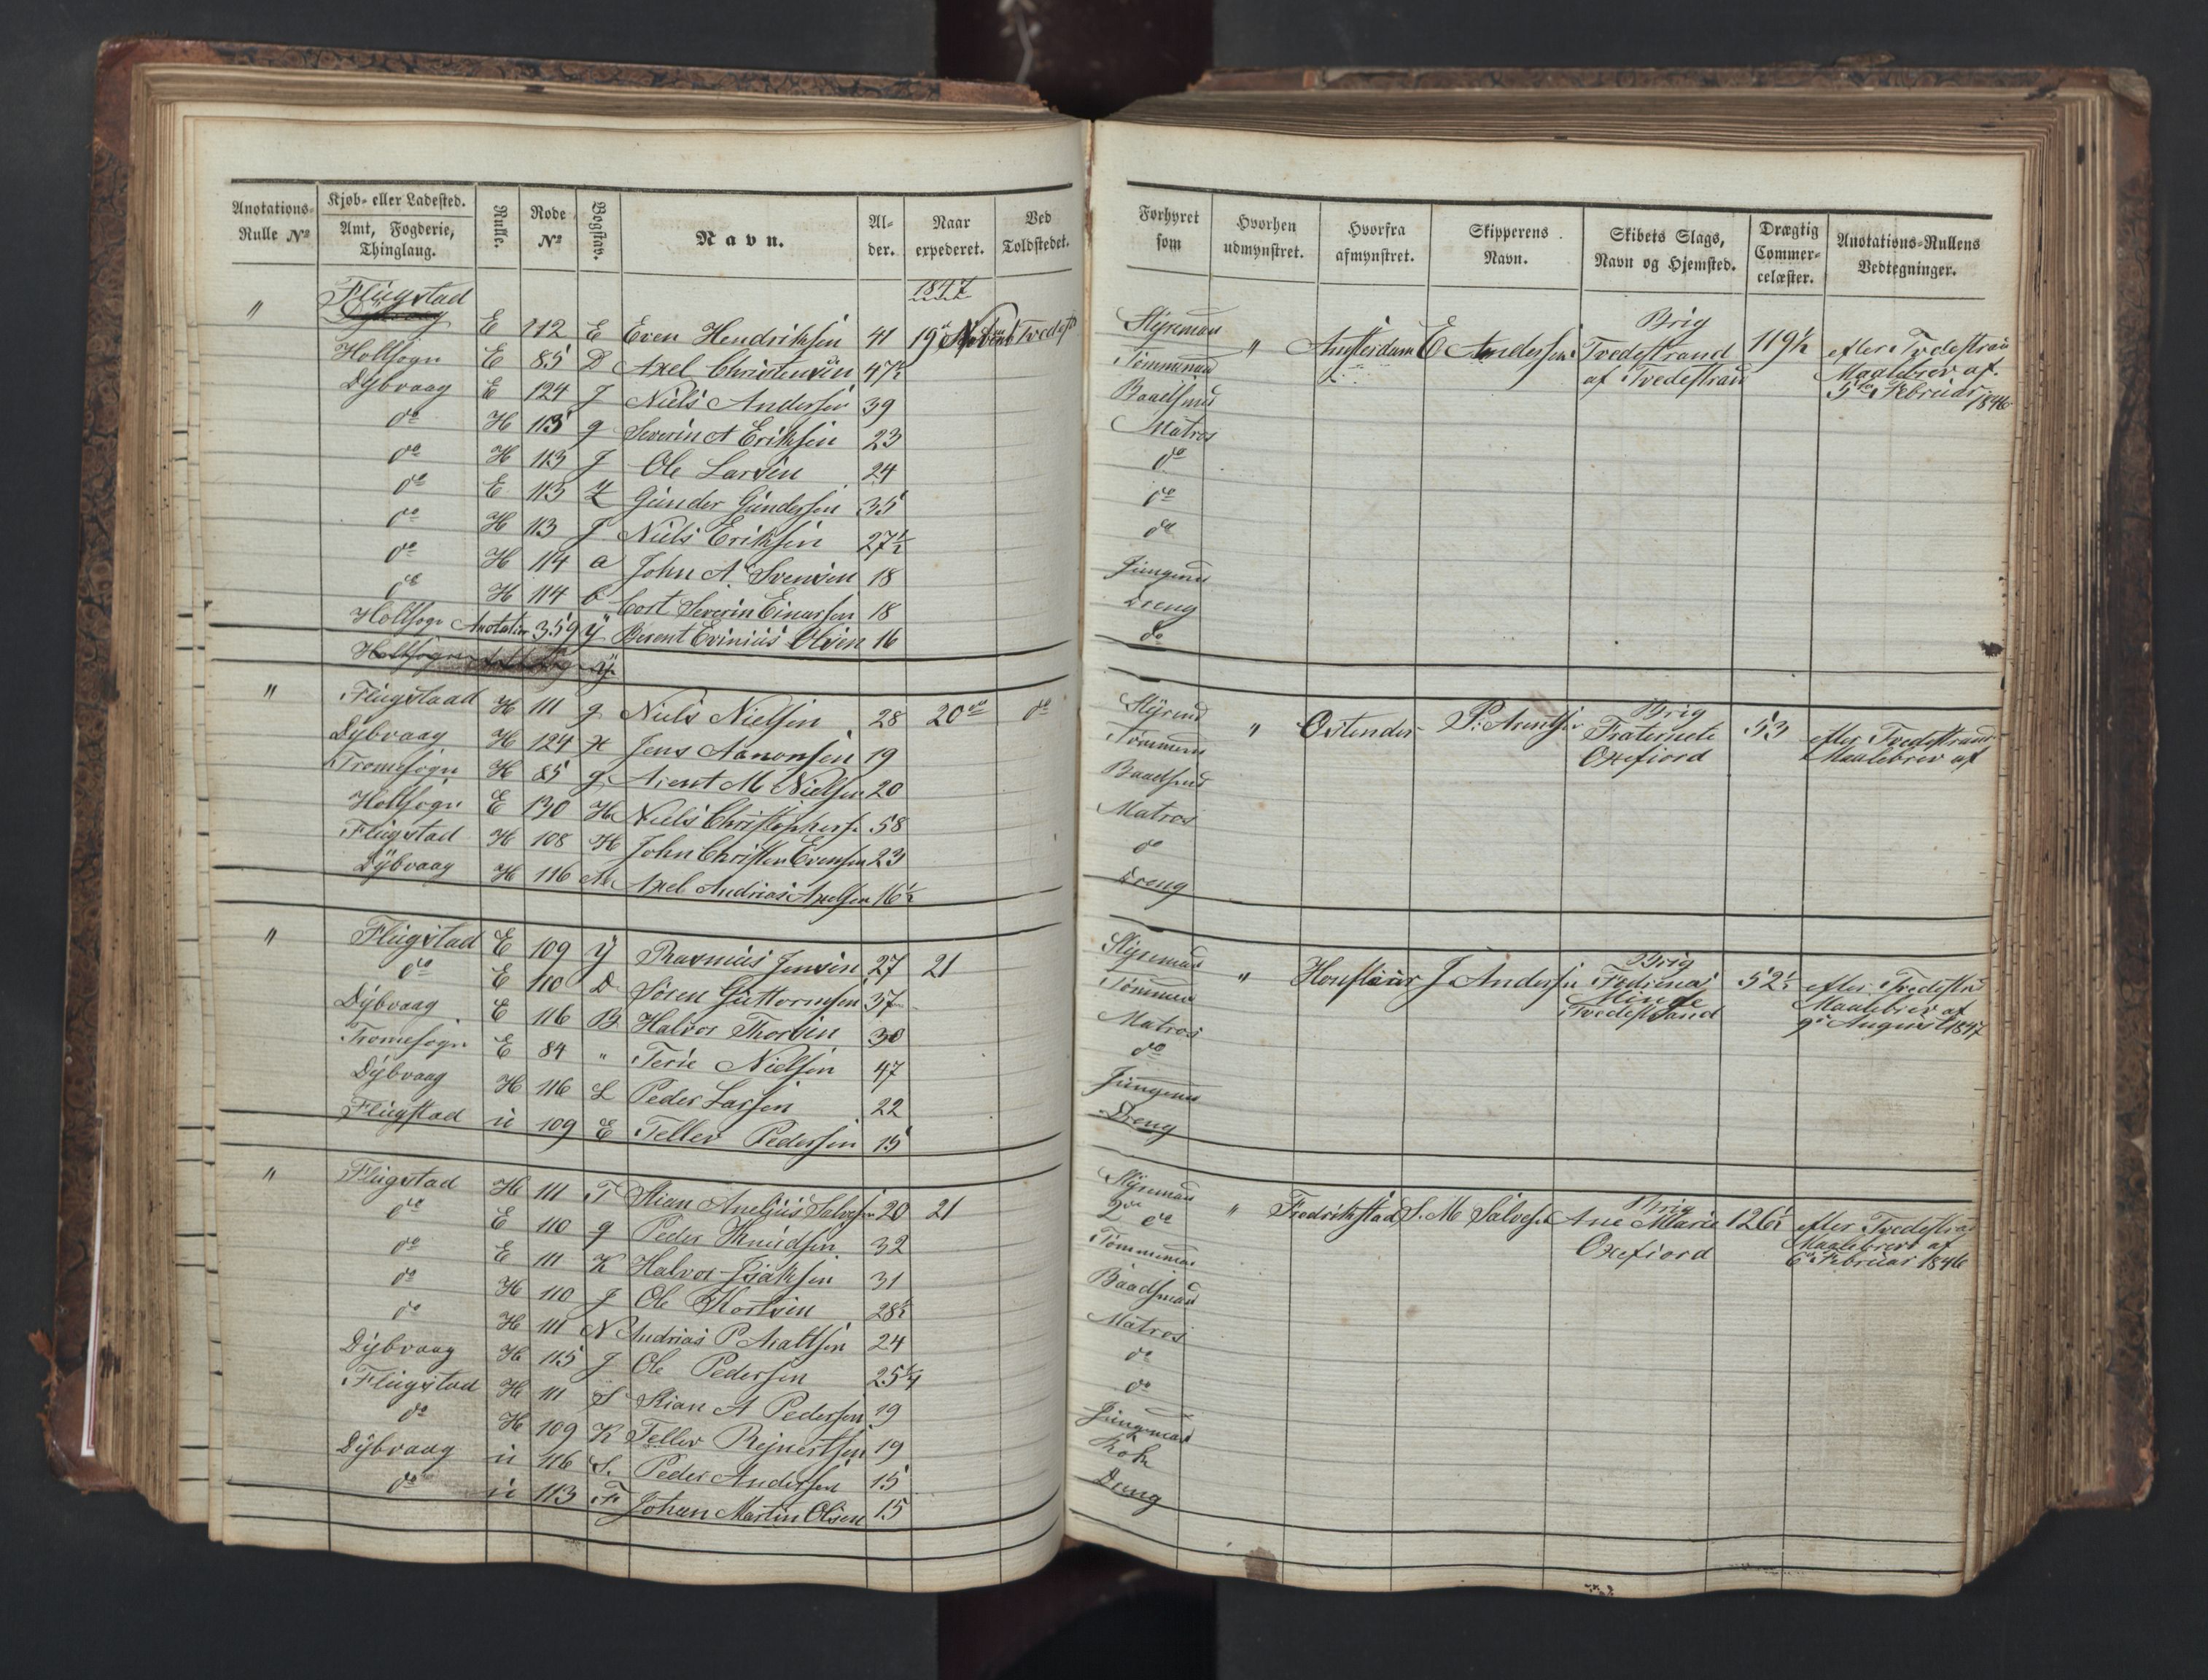 Anotations-Rulle Nº | Kjøb- eller Ladested. Amt, Fogderie, Thinglaug. | Rulle. | Rode Nº | Bogstav. | Navn. | Alder. | Naar expederet. | Ved Toldstedet. | Forhyret som | Hvorhen udmynstret. | Hvorfra afmynstret. | Skipperens Navn. | Skibets Slags, Navn og Hjemsted. | Drægtig Commercelæster. | Anotations-Rullens Vedtegninger.
1847
" Flügstad E 112 E Even Hendriksen 41 19de Novemb Tvedest Styremand " Amsterdam E Andersen Brig Tvedestrand af Tvedestrand 119½ efter Tvedestran Maalebrev af 5te Februar 1846
Holtsogn E 85 D Axel Christensen 47½ Tømmermd
Dÿbvaag E 124 J Niels Andersen 39 Baadsmd
do H 113 g Severin A Eriksen 23 Matros
do H 113 J Ole Larsen 24 do
do E 113 Z Gunder Gundersen 35 do
do H 113 J Niels Eriksen 27½ do
do H 114 a John A. Svensen 18 Jungmd
do H 114 b Cort Severin Einersen 18 Dreng
Holtsogn Anotation 359 ÿ Berent Evinius Olsen 16 do
" Flügstaad H 111 g Niels Nielsen 28 20de do Styrmd " Ostende P. Arentsen Brig Fraternete Oxefiord 53 efter Tvedestrand Maalebrev af
Dÿbvaag H 124 H Jens Aanonsen 19 Tømmerm
Tromesogn H 85 g Arent M Nielsen 20 Baadsmd
Holtsogn E 130 H Niels Christophers. 58 Matros
Flügstad H 108 H John Christen Evensen 23 do
Dÿbvaag H 116 M Axel Andrias Axelsen 16½ Dreng
" Flügstad E 109 ÿ Rasmus Jensen 27 21 Styremand " Honfleur J Andersen Brig Fredrenas Minde Tvedestrand 52½ efter Tvedestrd Maalebrev af 9de August 1847
do E 110 D Søren Guttormsen 37 Tømmerm
Dÿbvaag E 116 B Halvor Thorsen 30 Matros
Tromesogn E 84 " Terie Nielsen 47 do
Dÿbvaag H 116 L Peder Larsen 22 Jungmd
Flügstad ü 109 E Tellev Pedersen 15 Dreng
" Flügstad H 111 T Stian Aneljus Salvesen 20 21 Styremand " Fredrikstad S. M Salvesen Brig Ane Marie Oxefiord 126½ efter Tvedestrand Maalebrev af 6te Februar 1846
do E 110 g Peder Knudsen 32 2den do
do E 111 K Halvor Isaksen 31 Tømmermd
do H 110 J Ole Thorsen 28½ Baadsmand
do H 111 N Andrias P 24 Matros
Dÿbvaag H 115 J Ole Pedersen 25¼ do
Flügstad H 111 S Stian A Pedersen 19 do
do H 109 K Tellev Rejnertsen 19 Jungmand
Dÿbvaag ü 116 S. Peder Andersen 15 Kok
do ü 113 F Johan Martin Olsen 15 Dreng